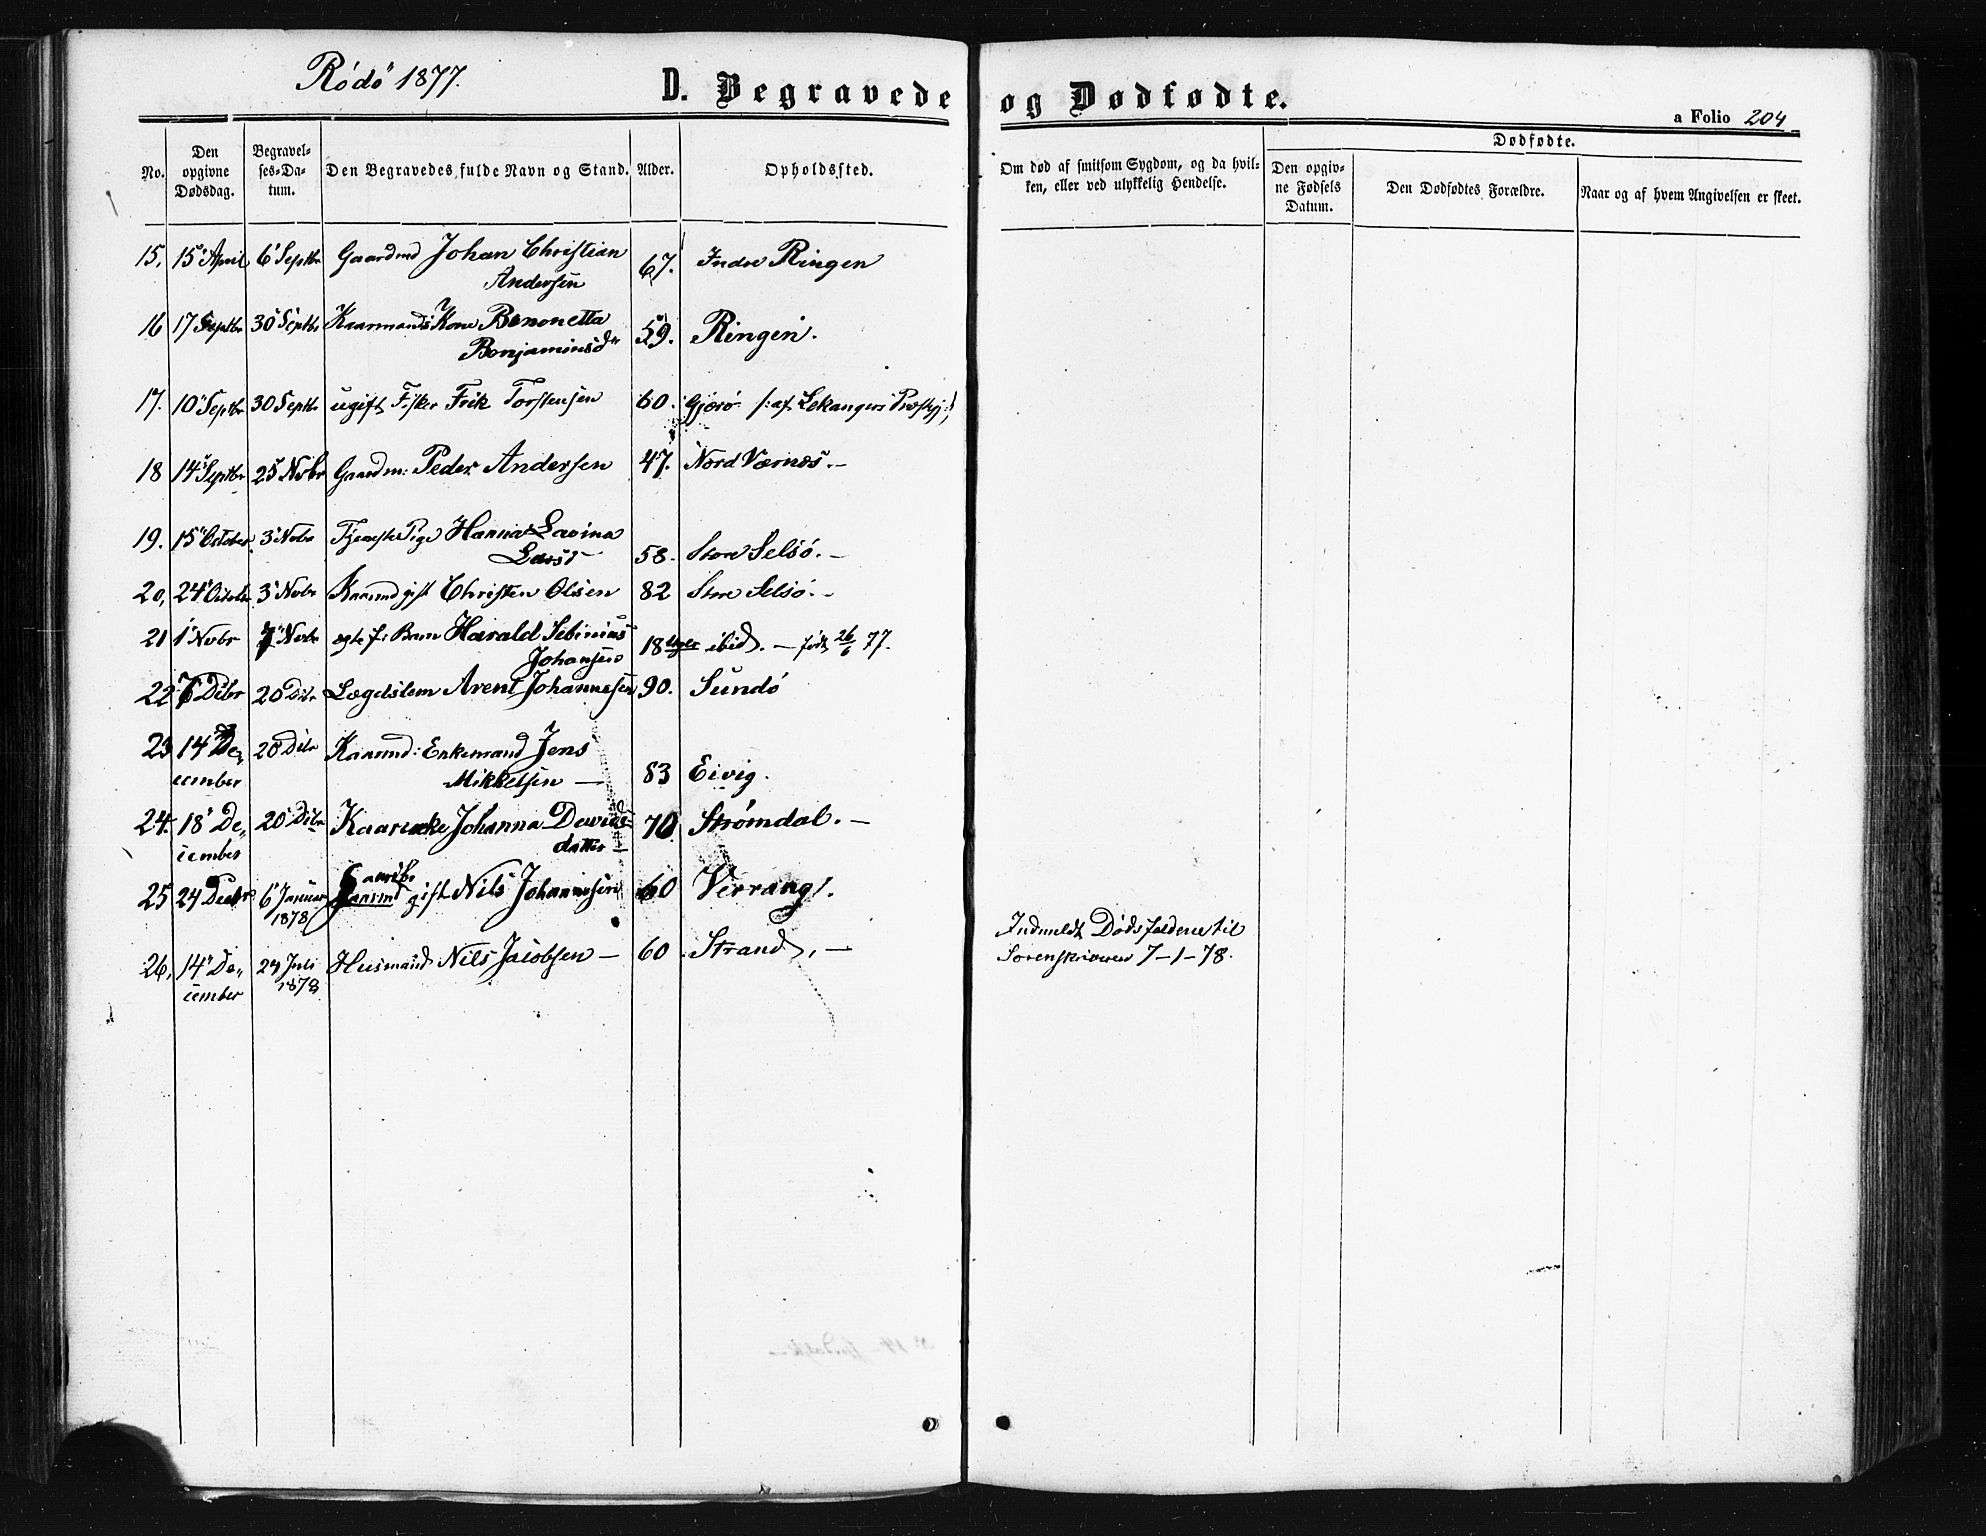 Rödö 1877.
D. Begravede og Dødfødte.
a Folio 204
No.
Den opgivne Dødsdag.
Begravelses-Datum.
Den Begravedes fulde Navn og Stand.
Alder.
Opholdssted.
Om død af smitsom Sygdom, og da hvilken, eller ved ulykkelig Hendelse.
Dødfødte.
Den opgivne Fødsels Datum.
Den Dødfødtes Forældre.
Naar og af hvem Angivelsen er skeet.
15, 15 April 6 Septbr Gaardmd Johan Christian 67. Indre Ringen
Andersen
16 17 Septbr 30 Septbr Kaarmands Kone Benonetta 59. Ringen.
Benjaminsd
17. 10 Septbr 30 Septbr ugift Fisker Erik Torstensen 60. Gjærø /: af Lekangers Præstgj :/
18 14 Septbr 25 Novbr Gaardm: Peder Andersen 47. Nord Værnæs. –
19. 15 October 3 Novbr Tjeneste Pige Hanna Lavina
Larsd 58. Store Selsö. –
20, 24 Octobr 3 Novbr Kaarmd gift Christen Olsen 82 Store Selsö. –
21 1 Novbr Novbr ægte f: Barn Harald Sebinius
Johansen 18 Uger ibid. – født 26/6 77.
22 Dcbr 20 Dcbr Lægdslem Arent Johannesen 90. Sundö
23 14 De- 20 Dcbr Kaarmd: Enkemand Jens
cember Mikkelsen — 83 Eivig.
24. 18 De- 20 Dcbr Kaarenke Johanna Davids- 70 Strømdal. –
cember datter –
25 24 Decbr 6 Januar gift Nils Johannesen 60 Verrang.
1878
26, 14 De- 24 Juli Husmand Nils Jacobsen – 60 Strand. –
cember 1878
Indmeldt Dødsfaldene til
Sorenskriveren 7-1-78.